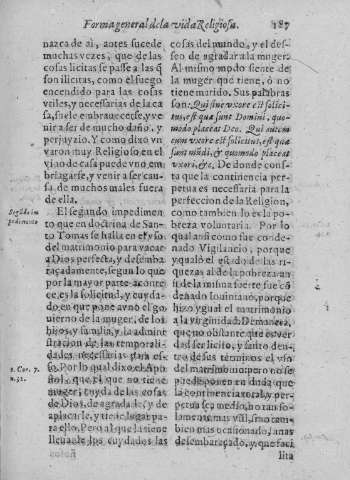 Forma general de la vida Religiosa. 187
nazca de aì, antes sucede
muchas vezes, que de las
cosas licitas se passe a las q̃
son ilicitas, como el fuego
encendido para las cosas
vtiles, y necessarias de la ca
sa, suele embrauecerse, y ve
nir a ser de mucho daño, y
perjuyzio. Y como dixo vn
varon muy Religioso en el
vino de casa puede vno em
briagarse, y venir a ser cau-
sa de muchos males fuera
de ella.
Segũdo im
pedimento
El segundo impedimen
to que en doctrina de San-
to Tomas se halla en el vso
del matrimonio para vacar
a Dios perfecta, y desemba
raçadamente, segun lo que
por la mayor parte aconte
ce, es la solicitud, y cuyda-
do en que pone a vno el go-
uierno de la muger, de los
hijos, y familia, y la admini
stracion de las temporali-
dades necessarias para es-
so. Por lo qual dixo el Apos
1. Cor. 7.
n. 32.
tol, que el que no tiene
muger, cuyda de las cosas
de Dios, de agradale, y de
aplacarle, y tiene lugar pa-
ra ello. Pero al que la tiene
lleuanle los cuydados las
cosas del mundo, y el des-
seo de agradar a la muger.
Al mismo modo siente de
la muger que tiene, ò no
tiene marido. Sus palabras
son: Qui sine vxore est solici-
tus, est quæ sunt Domini, quo-
modo placeat Deo. Qui autem
cum vxore est solicitus, est quæ
sunt mundi, & quomodo placeat
vxori, &c. De donde cons-
ta que la continencia per-
petua es necessaria para la
perfeccion de la Religion,
como tambien lo es la po-
breza voluntaria. Por lo
qual assi como fue conde-
nado Vigilancio, porque
ygualò el estado de las ri-
quezas al de la pobreza: an
si de la misma fuerte fue cõ
denado Iouiniano, porque
hizo ygual el matrimonio
a la virginidad. De manera,
que no obstante que es ver-
dad ser licito, y santo den-
tro de sus terminos el vso
del matrimonio; pero no se
puede poner en duda; que
la continencia total, y per-
petua sea medio, no tan so-
lamente mas vtil, sino tam-
bien mas ocasionado, a mas
desembaraçado, y que faci
lita